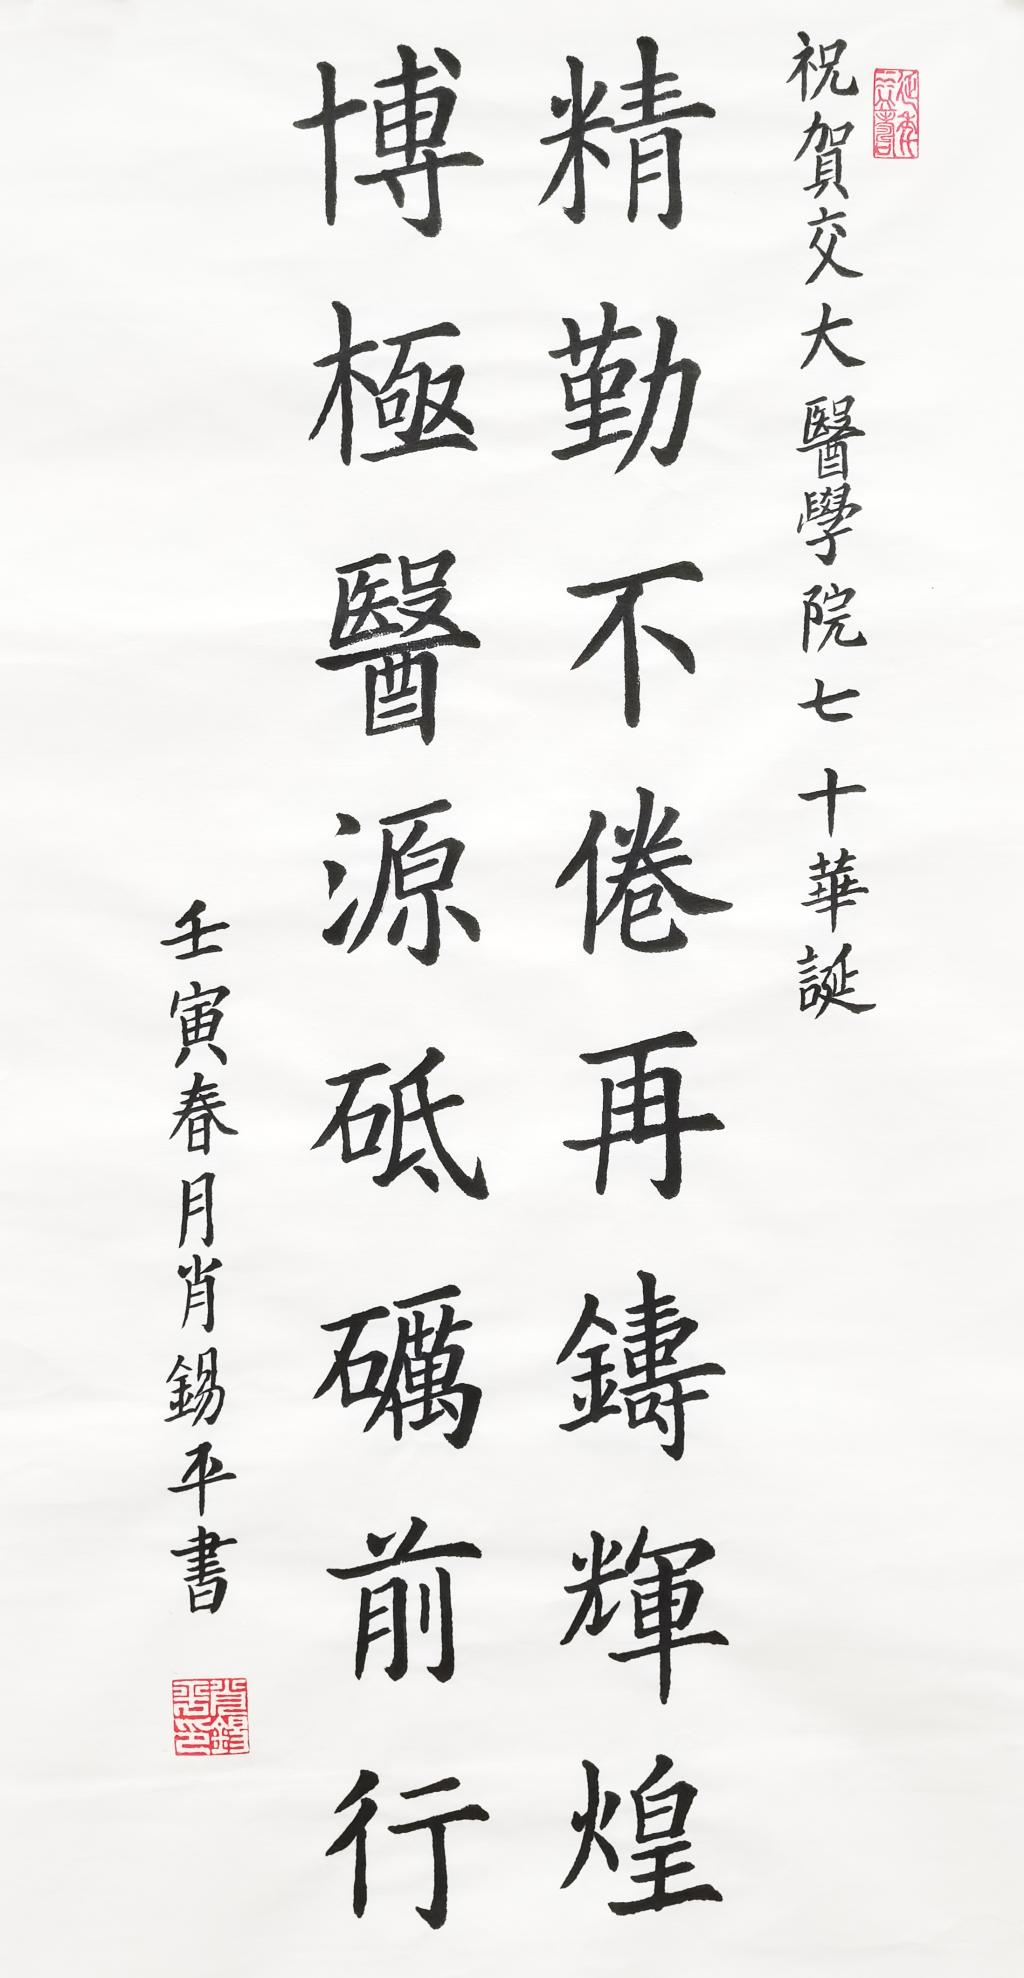 祝賀交大醫學院七十華誕
精勤不倦再鑄輝煌
博極醫源砥礪前行
壬寅春月肖錫平書
肖錫平印